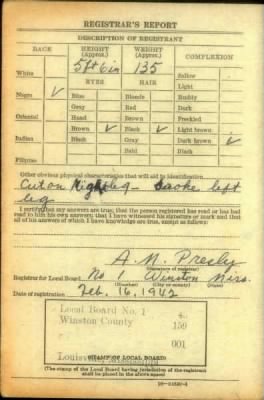 REGISTRAR'S REPORT
DESCRIPTION OF REGISTRANT
RACE HEIGHT (Approx.) WEIGHT (Approx.) COMPLEXION
5 ft 6 in 135
White Sallow
EYES HAIR Light
Negro ✓ Blue Blonde Ruddy
Gray Red Dark
Oriental Hazel Brown Freckled
Brown ✓ Black ✓ Light brown
Indian Black Gray Dark brown ✓
Bald Black
Filipino
Other obvious physical characteristics that will aid in identification
Cut on Right leg - Broke left
leg
I certify that my answers are true; that the person registered has read or has had
read to him his own answers; that I have witnessed his signature or mark and that
all of his answers of which I have knowledge are true, except as follows:
A. M. Presly
(Signature of registrar)
Registrar for Local Board No 1 Winston Miss.
(Number) (City or county) (State)
Date of registration Feb. 16, 1942
Local Board No. 1 4
Winston County 159
001
Louisville, Mississippi
(STAMP OF LOCAL BOARD)
(The stamp of the Local Board having jurisdiction of the registrant
shall be placed in the above space)